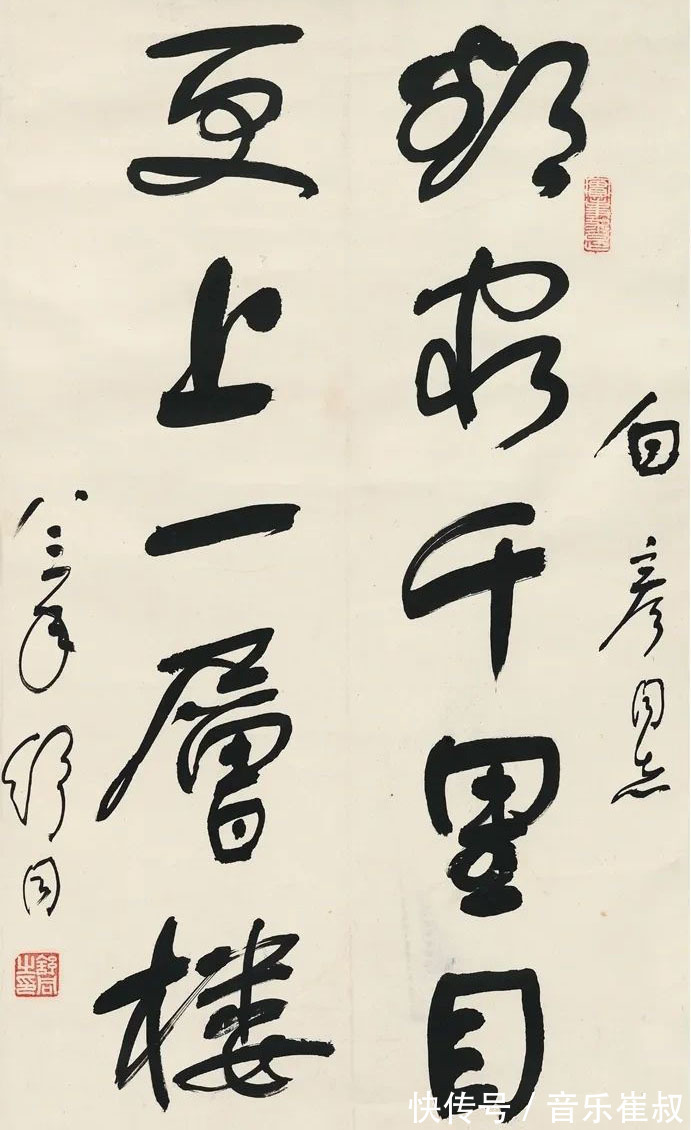 白彦同志
欲穷千里目
更上一層楼
八三年 舒同
舒同之印
快传号 / 音乐崔叔